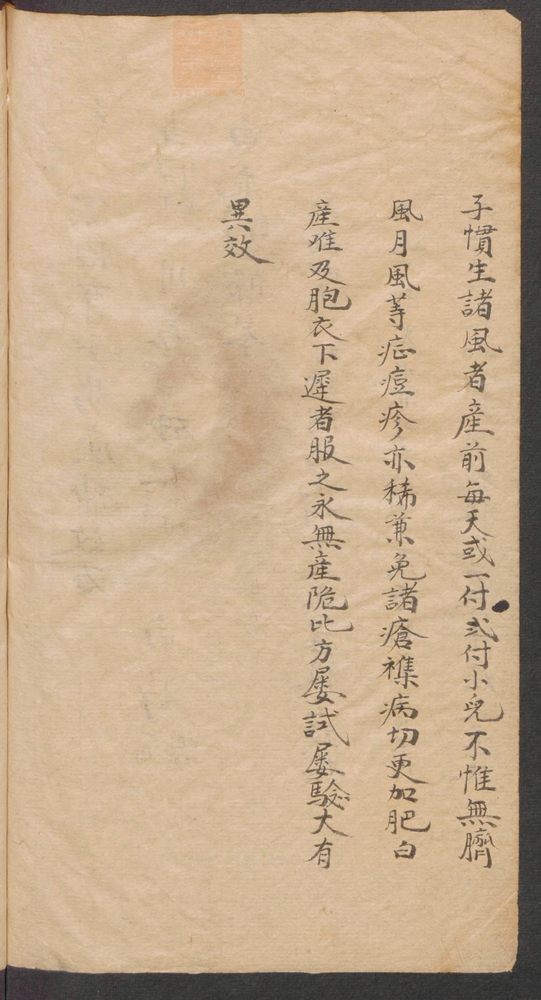 子慣生諸風者產前每天或一付弍付小兒不惟無臍
風月風等症痘疹亦稀兼免諸瘡襍病切更加肥白
產难及胞衣下遲者服之永無產险比方屡試屡驗大有
異效